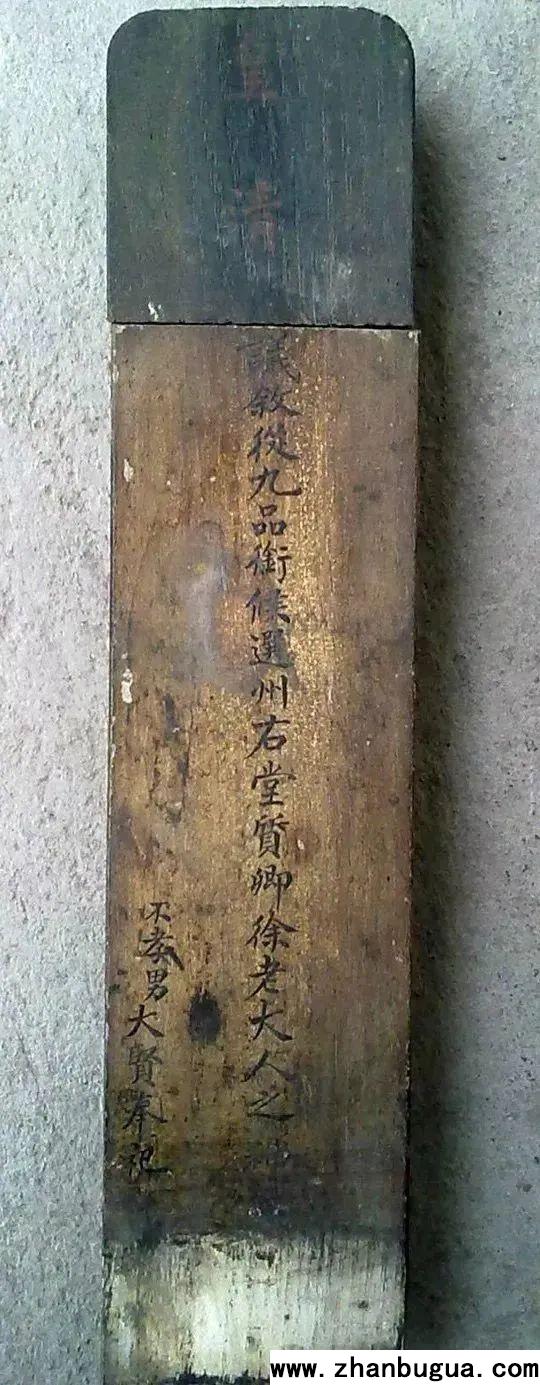 皇清
議敘從九品銜候選州右堂質卿徐老大人之神
不孝男大賢奉祀
www.zhanbugua.com